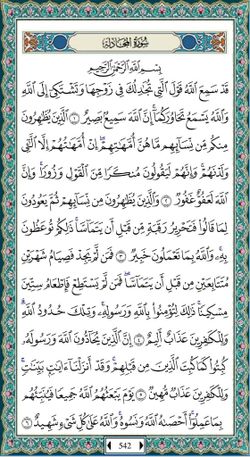 سُورَةُ المُجَادلَةِ
بِسْمِ ٱللَّهِ ٱلرَّحْمَٰنِ ٱلرَّحِيمِ
قَدْ سَمِعَ ٱللَّهُ قَوْلَ ٱلَّتِي تُجَٰدِلُكَ فِي زَوْجِهَا وَتَشْتَكِيٓ إِلَى ٱللَّهِ
وَٱللَّهُ يَسْمَعُ تَحَاوُرَكُمَآۚ إِنَّ ٱللَّهَ سَمِيعُۢ بَصِيرٌ ۝١ ٱلَّذِينَ يُظَٰهِرُونَ
مِنكُم مِّن نِّسَآئِهِم مَّا هُنَّ أُمَّهَٰتِهِمْۖ إِنْ أُمَّهَٰتُهُمْ إِلَّا ٱلَّٰٓـِٔي
وَلَدْنَهُمْۚ وَإِنَّهُمْ لَيَقُولُونَ مُنكَرًا مِّنَ ٱلْقَوْلِ وَزُورًاۚ وَإِنَّ
ٱللَّهَ لَعَفُوٌّ غَفُورٌ ۝٢ وَٱلَّذِينَ يُظَٰهِرُونَ مِن نِّسَآئِهِمْ ثُمَّ يَعُودُونَ
لِمَا قَالُوا۟ فَتَحْرِيرُ رَقَبَةٍ مِّن قَبْلِ أَن يَتَمَآسَّاۚ ذَٰلِكُمْ تُوعَظُونَ
بِهِۦۚ وَٱللَّهُ بِمَا تَعْمَلُونَ خَبِيرٌ ۝٣ فَمَن لَّمْ يَجِدْ فَصِيَامُ شَهْرَيْنِ
مُتَتَابِعَيْنِ مِن قَبْلِ أَن يَتَمَآسَّاۖ فَمَن لَّمْ يَسْتَطِعْ فَإِطْعَامُ سِتِّينَ
مِسْكِينًاۚ ذَٰلِكَ لِتُؤْمِنُوا۟ بِٱللَّهِ وَرَسُولِهِۦۚ وَتِلْكَ حُدُودُ ٱللَّهِۗ
وَلِلْكَٰفِرِينَ عَذَابٌ أَلِيمٌ ۝٤ إِنَّ ٱلَّذِينَ يُحَآدُّونَ ٱللَّهَ وَرَسُولَهُۥ
كُبِتُوا۟ كَمَا كُبِتَ ٱلَّذِينَ مِن قَبْلِهِمْۚ وَقَدْ أَنزَلْنَآ ءَايَٰتِۭ بَيِّنَٰتٍۚ
وَلِلْكَٰفِرِينَ عَذَابٌ مُّهِينٌ ۝٥ يَوْمَ يَبْعَثُهُمُ ٱللَّهُ جَمِيعًا فَيُنَبِّئُهُم
بِمَا عَمِلُوٓا۟ۚ أَحْصَىٰهُ ٱللَّهُ وَنَسُوهُۚ وَٱللَّهُ عَلَىٰ كُلِّ شَىْءٍ شَهِيدٌ ۝٦
542